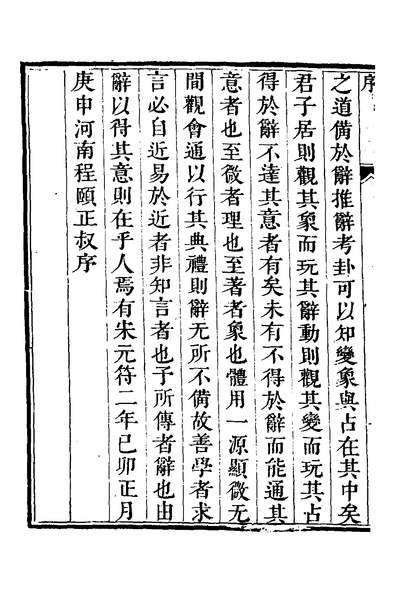 序
之道備於辭推辭考卦可以知變象與占在其中矣
君子居則觀其象而玩其辭動則觀其變而玩其占
得於辭不達其意者有矣未有不得於辭而能通其
意者也至微者理也至著者象也體用一源顯微无
間觀會通以行其典禮則辭无所不備故善學者求
言必自近易於近者非知言者也予所傳者辭也由
辭以得其意則在乎人焉有宋元符二年已卯正月
庚申河南程頤正叔序